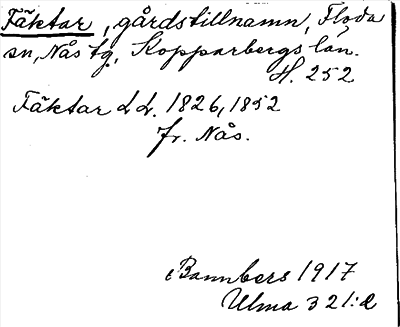 Fäktar, gårdstillnamn, Floda
sn, Nås tg, Kopparbergs län.
H. 252
Fäktar d.ä. 1826, 1852
fr. Nås.
Bannbers 1917
Ulma 321:2